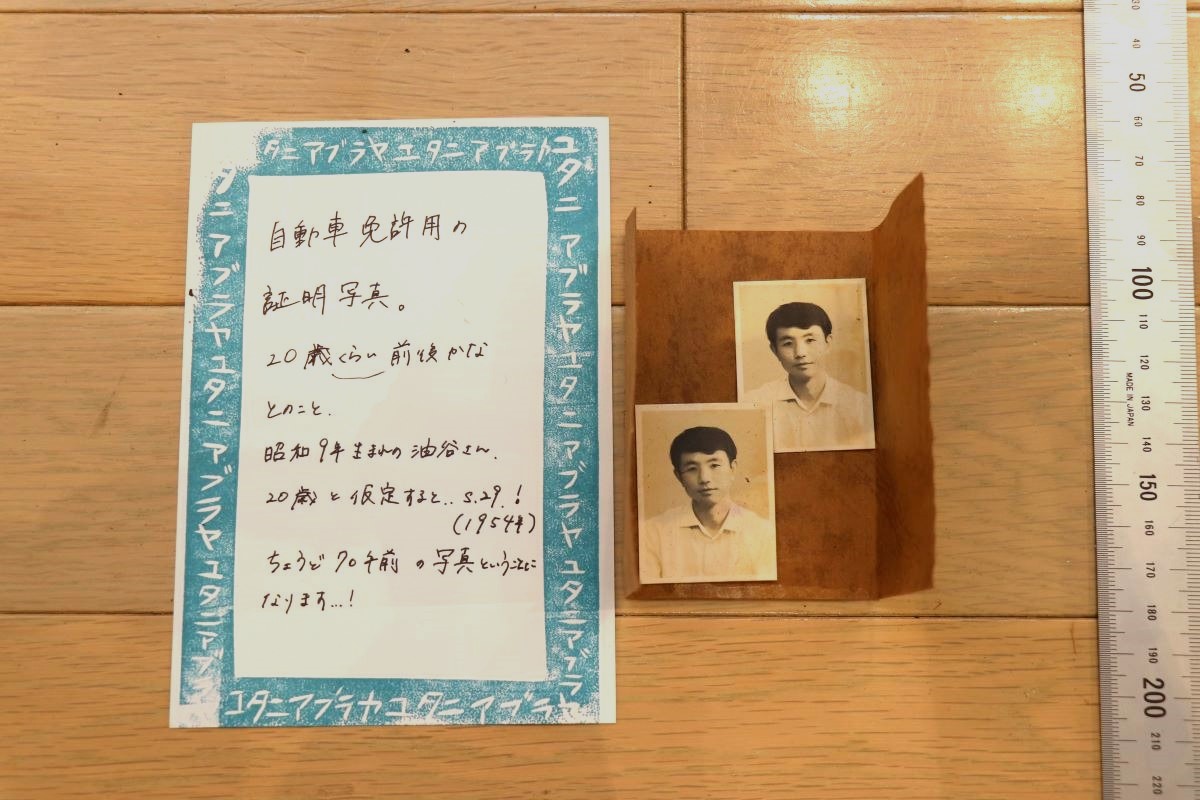 タニアブラヤユタニアブラヤ
ユタニアブラヤユタニアブラヤユタニアブラヤ
タニアブラヤユタニアブラヤユタニアブラ
ユタニアブラヤユタニアブラヤ
自動車免許用の
証明写真。
20歳くらい前後かな
とのこと.
昭和9年生まれの油谷さん.
20歳と仮定すると.. S.29.!
(1954年)
ちょうど70年前の写真ということに
なります...!
30
40
50
60
70
80
90
100
110
120
MADE IN JAPAN
130
140
150
160
170
180
190
200
210
220